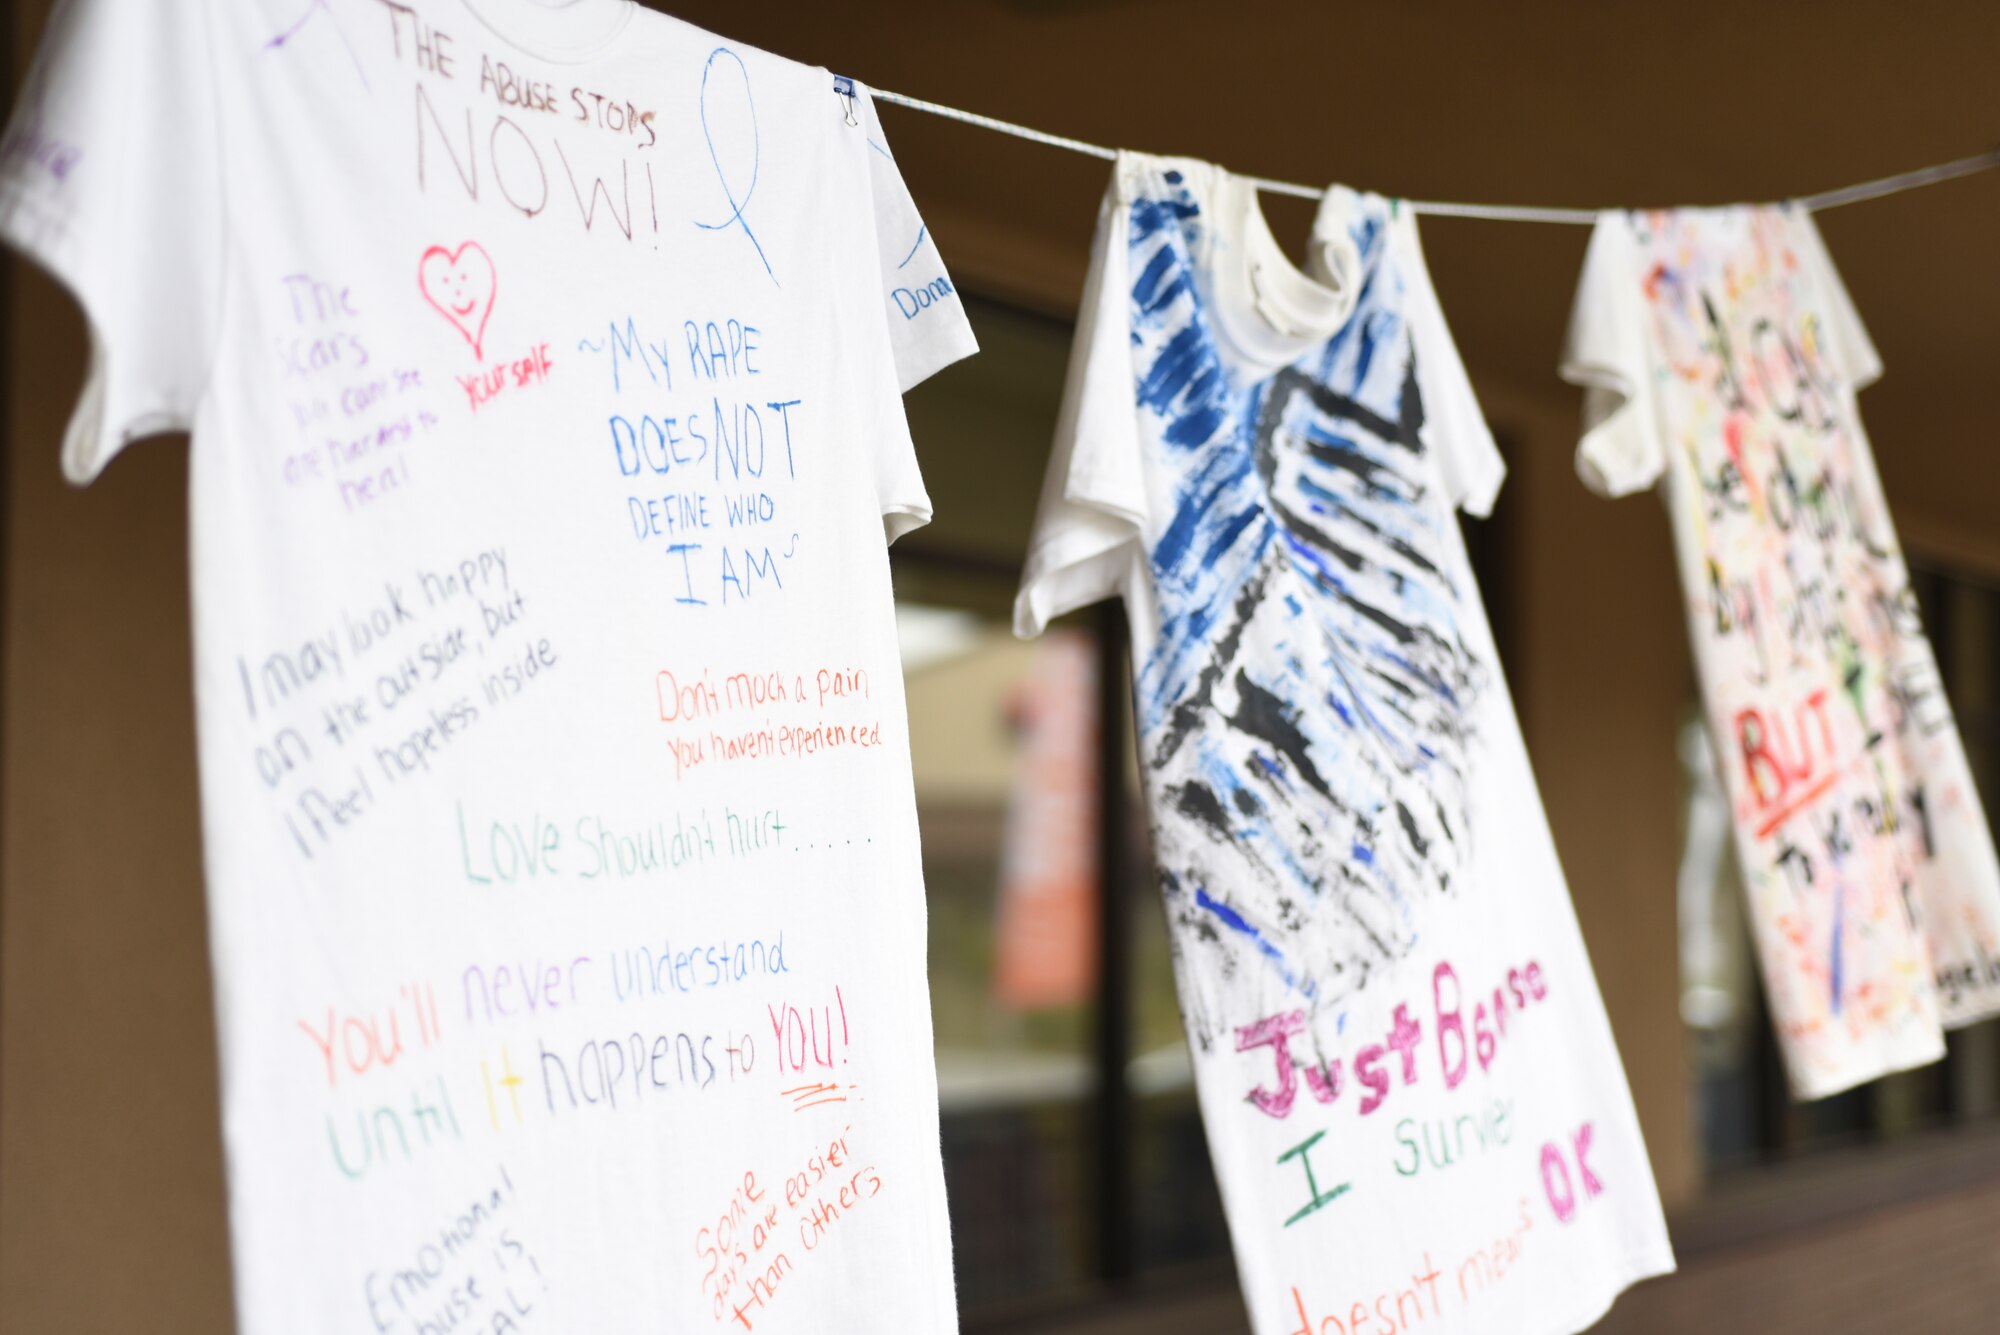 THE ABUSE STOPS
NOW!
The
scars
you can see
are hardest to
heal
YOURSELF
~My RAPE
DOES NOT
DEFINE WHO
I AM~
I may look happy
on the outside, but
I feel hopeless inside
Don't mock a pain
you haven't experienced
Love Shouldn't hurt.....
You'll never understand
until it happens to YOU!
Emotional
buse is
EAL!
Some
days are easier
than others
Just Becase
I Survie
doesn't means OK
BUT